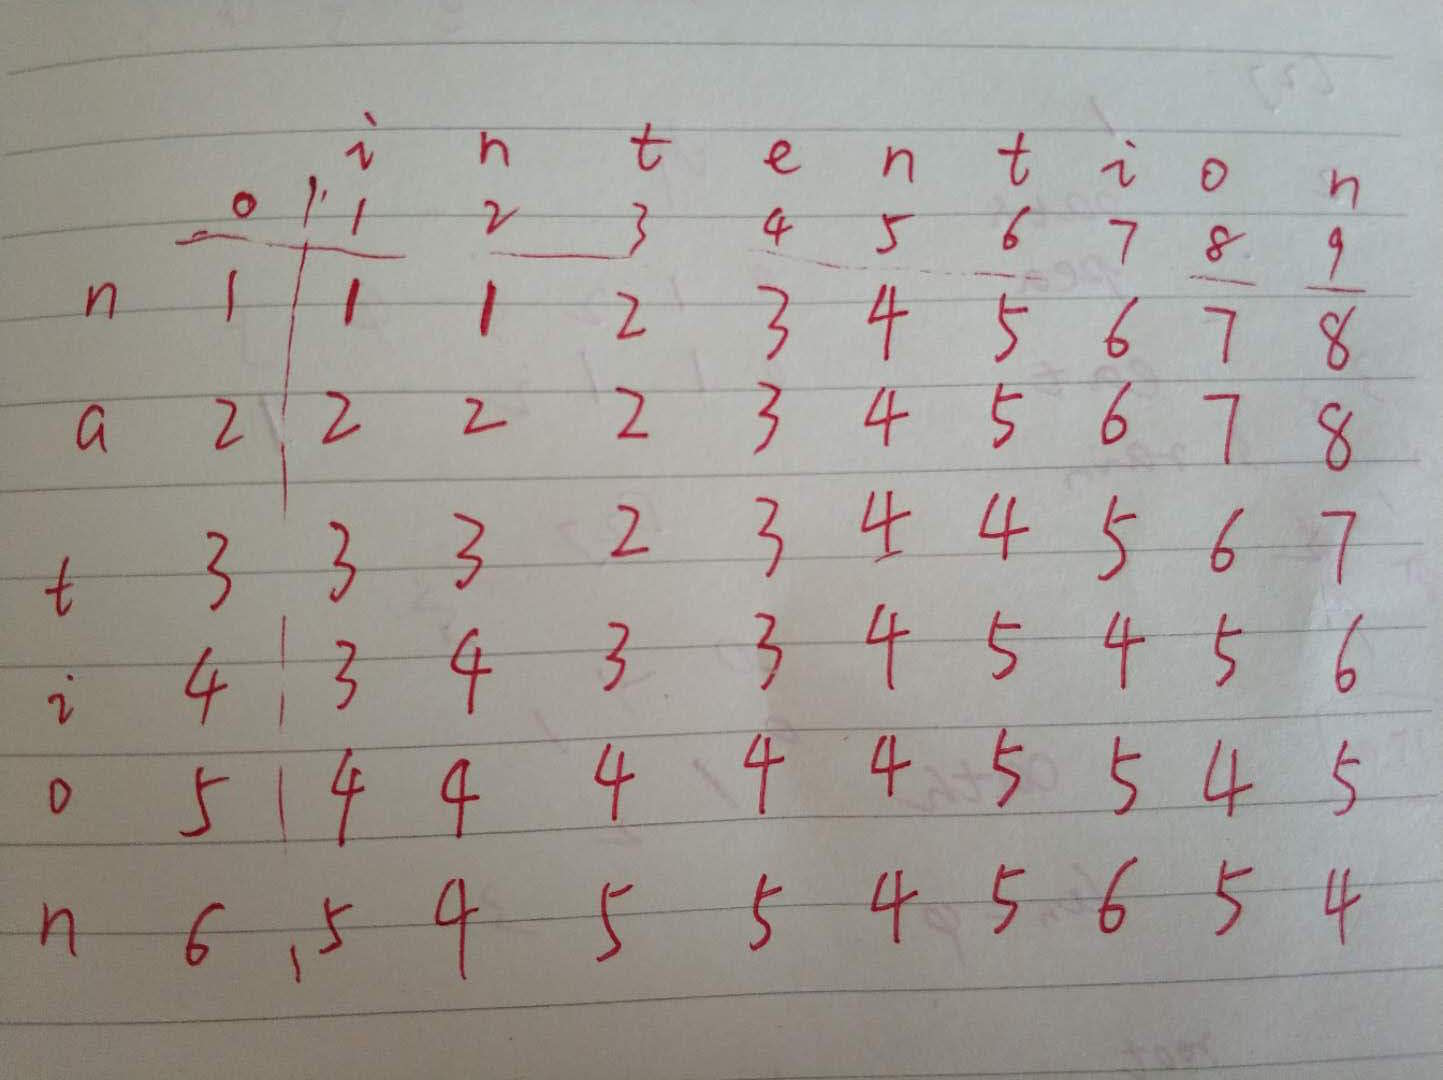 i n t e n t i o n
0 1 2 3 4 5 6 7 8 9
n 1 1 1 2 3 4 5 6 7 8
a 2 2 2 2 3 4 5 6 7 8
t 3 3 3 2 3 4 4 5 6 7
i 4 3 4 3 3 4 5 4 5 6
o 5 4 4 4 4 4 5 5 4 5
n 6 5 4 5 5 4 5 6 5 4